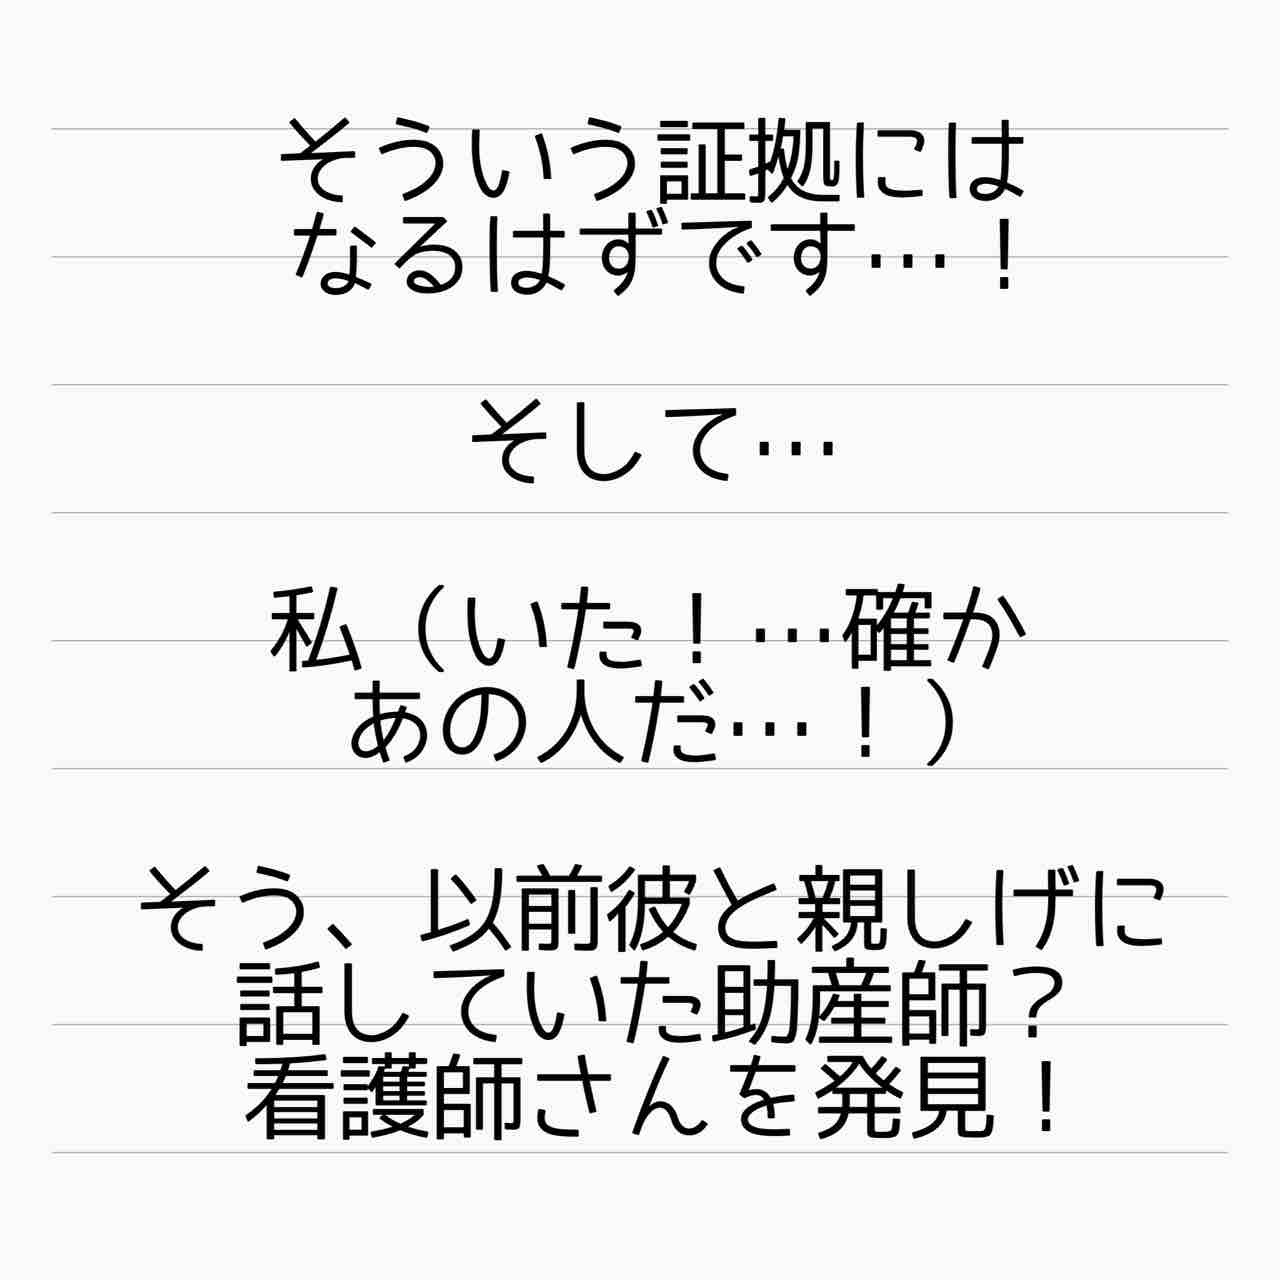 そういう証拠には
なるはずです…！
そして…
私（いた！…確か
あの人だ…！）
そう、以前彼と親しげに
話していた助産師？
看護師さんを発見！